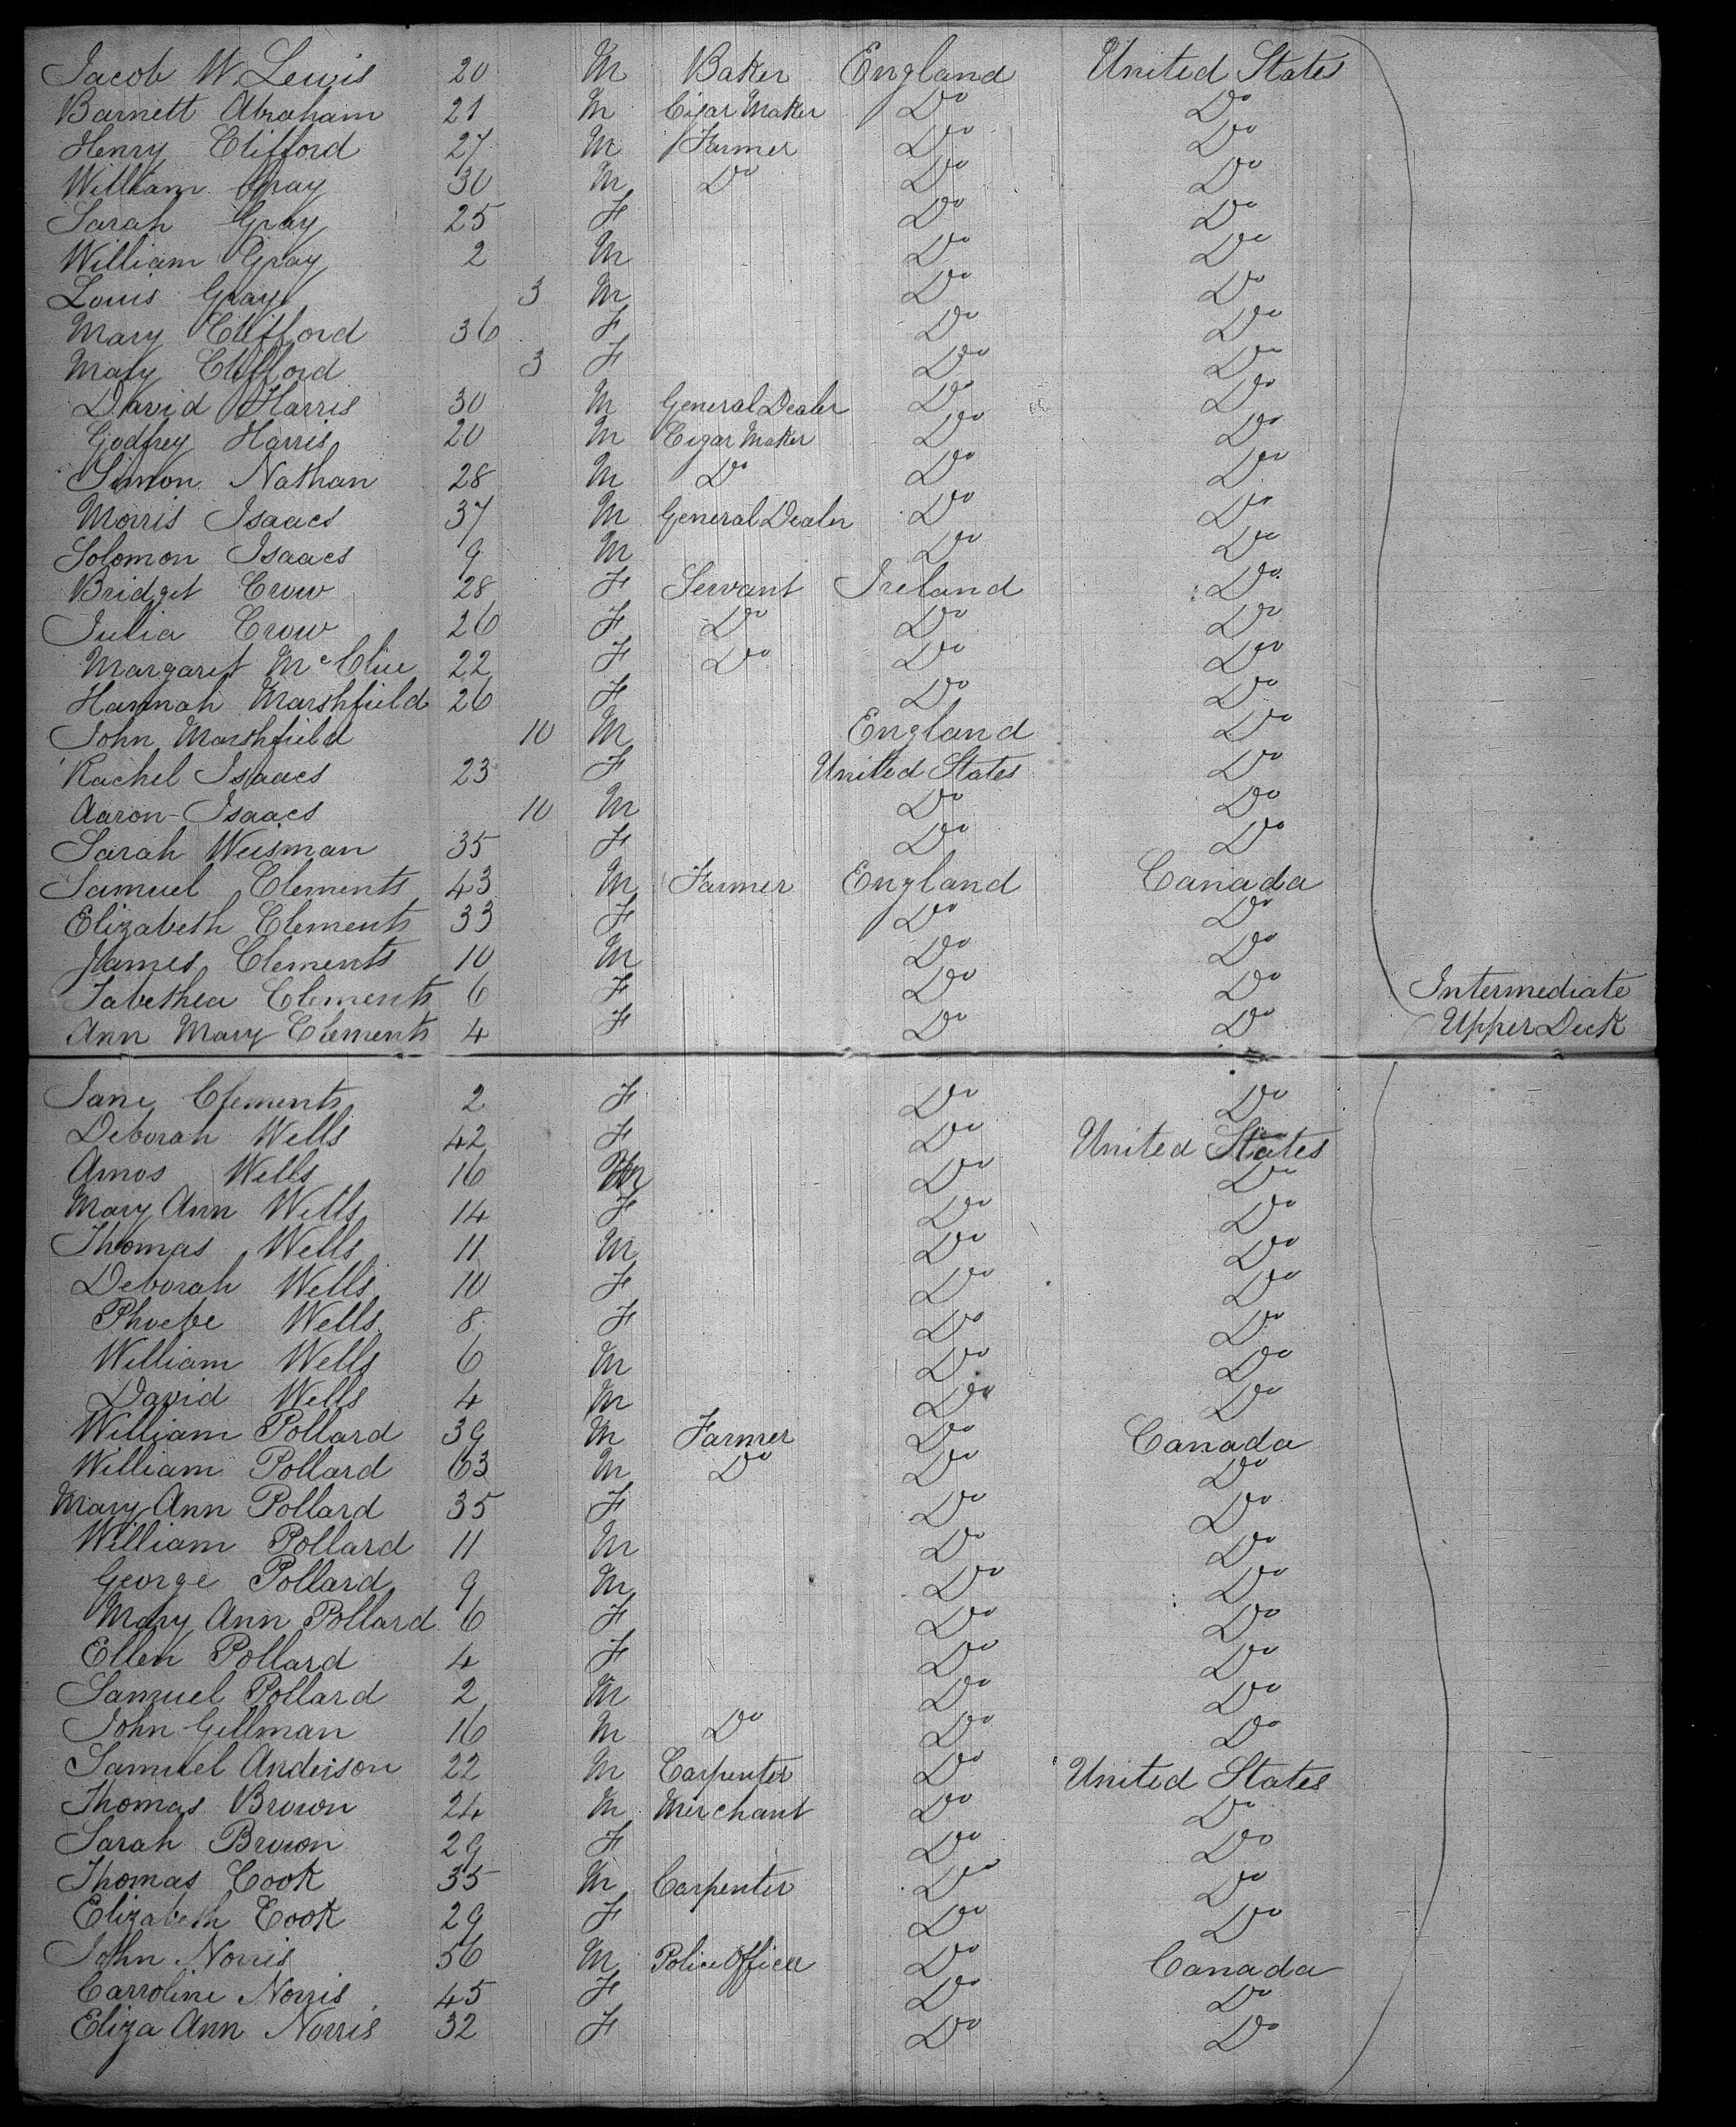 Jacob W. Lewis 20 M Baker England United States
Barnett Abraham 21 M Cigar Maker Do Do
Henry Clifford 27 M Farmer Do Do
William Gray 30 M Do Do Do
Sarah Gray 25 F Do Do
William Gray 2 M Do Do
Louis Gray 3 M Do Do
Mary Clifford 36 F Do Do
Mary Clifford 3 F Do Do
David Harris 30 M General Dealer Do Do
Godfrey Harris 20 M Cigar Maker Do Do
Simon Nathan 28 M Do Do Do
Morris Isaacs 37 M General Dealer Do Do
Solomon Isaacs 9 M Do Do
Bridget Crow 28 F Servant Ireland Do
Julia Crow 26 F Do Do Do
Margaret McClue 22 F Do Do Do
Hannah Marshfield 26 F Do Do
John Marshfield 10 M England Do
Rachel Isaacs 23 F United States Do
Aaron Isaacs 10 M Do Do
Sarah Weisman 35 F Do Do
Samuel Clements 43 M Farmer England Canada
Elizabeth Clements 33 F Do Do
James Clements 10 M Do Do
Tabethea Clements 6 F Do Do Intermediate
Ann Mary Clements 4 F Do Do Upper Deck
Jane Clements 2 F Do Do
Deborah Wells 42 F Do United States
Amos Wells 16 M Do Do
Mary Ann Wells 14 F Do Do
Thomas Wells 11 M Do Do
Deborah Wells 10 F Do Do
Phoebe Wells 8 F Do Do
William Wells 6 M Do Do
David Wells 4 M Do Do
William Pollard 39 M Farmer Do Canada
William Pollard 63 M Do Do Do
Mary Ann Pollard 35 F Do Do
William Pollard 11 M Do Do
George Pollard 9 M Do Do
Mary Ann Pollard 6 F Do Do
Ellen Pollard 4 F Do Do
Samuel Pollard 2 M Do Do
John Gillman 16 M Do Do Do
Samuel Anderson 22 M Carpenter Do United States
Thomas Brown 24 M Merchant Do Do
Sarah Brown 29 F Do Do
Thomas Cook 35 M Carpenter Do Do
Elizabeth Cook 29 F Do Do
John Norris 56 M Police Officer Do Canada
Carroline Norris 45 F Do Do
Eliza Ann Norris 32 F Do Do